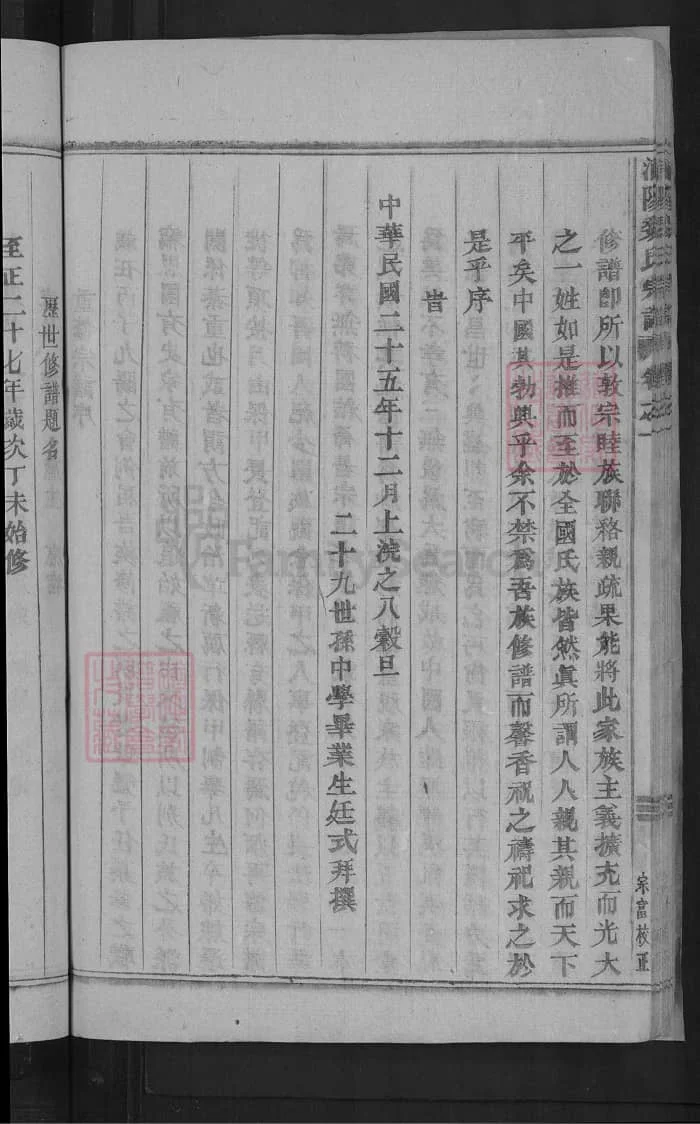 氏宗譜
宗富校正
修譜即所以敦宗睦族聯絡親疏果能將此家族主義擴充而光大
之一姓如是推而至於全國氏族皆然眞所謂人人親其親而天下
平矣中國其勃興乎余不禁爲吾族修譜而馨香祝之禱祀求之於
是乎序
旹
中華民國二十五年十二月上浣之八穀旦
二十九世孫中學畢業生廷式拜撰
歷世修譜題名
至正二十七年歲次丁未始修
FamilySearch